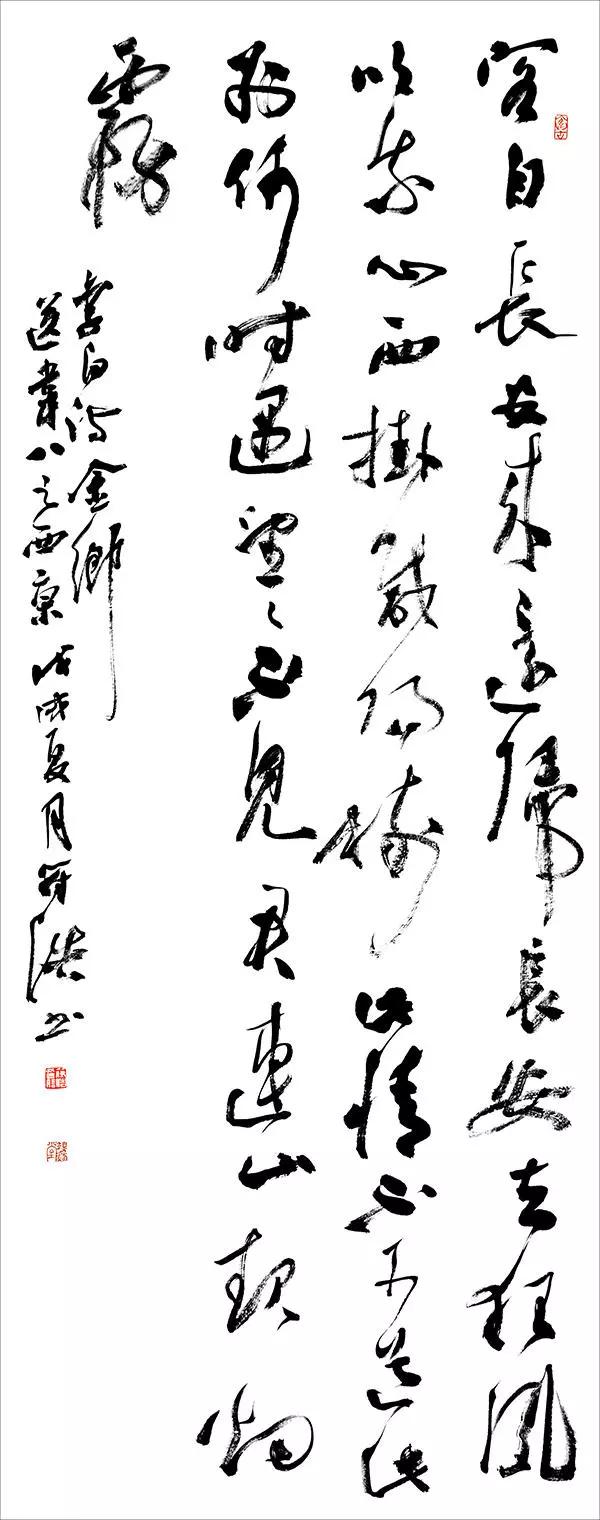 客自長安来還歸長安去狂風
吹我心西掛咸陽樹此情不可道此
别何時遇望々不見君連山起烟
霧
李白詩金鄉
送韋八之西京戊戌夏月书